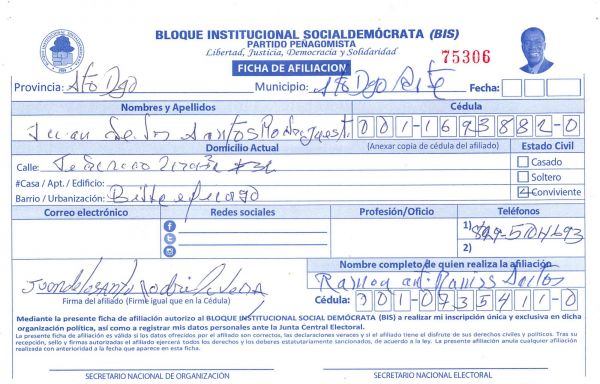 BLOQUE INSTITUCIONAL SOCIALDEMÓCRATA (BIS)
PARTIDO PEÑAGOMISTA
Libertad, Justicia, Democracia y Solidaridad
75306
FICHA DE AFILIACION
Provincia: Sto Dgo Municipio: Sto Dgo Este Fecha:
Nombres y Apellidos Cédula
Juan De los Santos 001-1693882-0
Domicilio Actual (Anexar copia de cédula del afiliado) Estado Civil
Calle:
Casado
#Casa / Apt. / Edificio:
Soltero
Barrio / Urbanización:
Conviviente
Correo electrónico Redes sociales Profesión/Oficio Teléfonos
1) 829-5704693
2)
Nombre completo de quien realiza la afiliación
Ramon ant. Ramirez
Firma del afiliado (Firme igual que en la Cédula)
Cédula: 001-0735411-0
Mediante la presente ficha de afiliación autorizo al BLOQUE INSTITUCIONAL SOCIAL DEMÓCRATA (BIS) a realizar mi inscripción única y exclusiva en dicha
organización política, así como a registrar mis datos personales ante la Junta Central Electoral.
La presente ficha de afiliación es válida si los datos ofrecidos por el afiliado son correctos, las declaraciones veraces y si el afiliado tiene el disfrute de sus derechos civiles y políticos. Tras su
recepción, sello y firmas autorizadas el afiliado ejercerá todos los derechos y los deberes estatutariamente sancionados, de acuerdo a la ley. La presente afiliación anula cualquier afiliación
realizada con anterioridad a la fecha que aparece en esta ficha.
SECRETARIO NACIONAL DE ORGANIZACIÓN SECRETARIO NACIONAL ELECTORAL